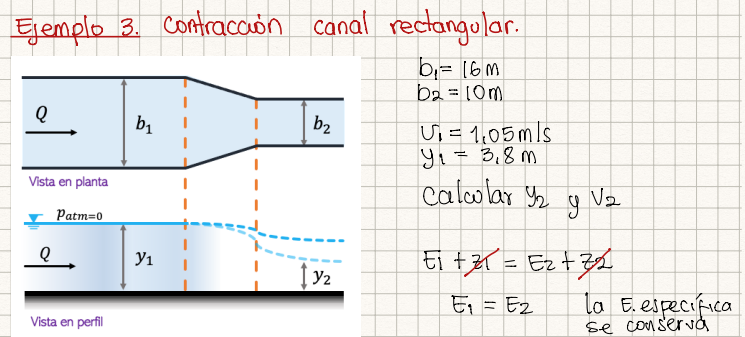 Ejemplo 3. Contracción canal rectangular.
Q
b1
b2
Vista en planta
Patm=0
Q
y1
y2
Vista en perfil
b1 = 16m
b2 = 10m
v1 = 1,05m/s
y1 = 3,8m
Calcular y2 y V2
E1 + z1 = E2 + z2
E1 = E2 la E. específica
se conserva